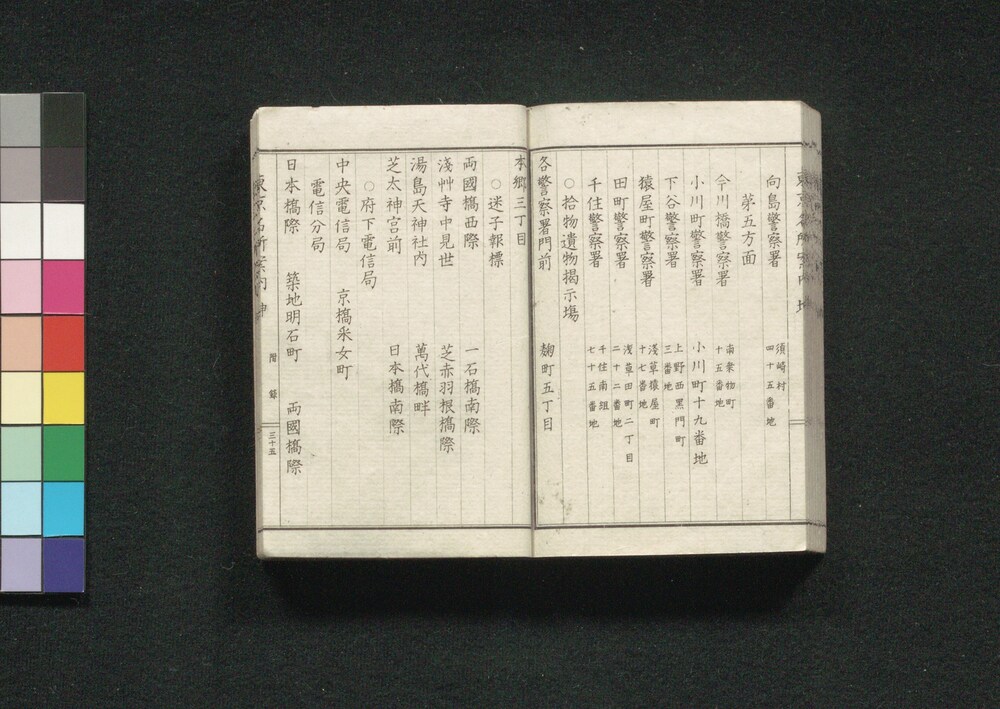 向島警察署 須崎村四十五番地
第五方面
今川橋警察署 南乗物町十五番地
小川町警察署 小川町十九番地
下谷警察署 上野西黒門町三番地
猿屋町警察署 淺草猿屋町十七番地
田町警察署 淺草田町二丁目二十二番地
千住警察署 千住南組七十五番地
○拾物遺物揭示塲
各警察署門前 麹町五丁目
本郷三丁目
○迷子報標
両國橋西際 一石橋南際
淺艸寺中見世 芝赤羽根橋際
湯島天神社内 萬代橋畔
芝太神宮前 日本橋南際
○府下電信局
中央電信局 京橋釆女町
電信分局
日本橋際 築地明石町 両國橋際
東京名所案内
附錄
三十五